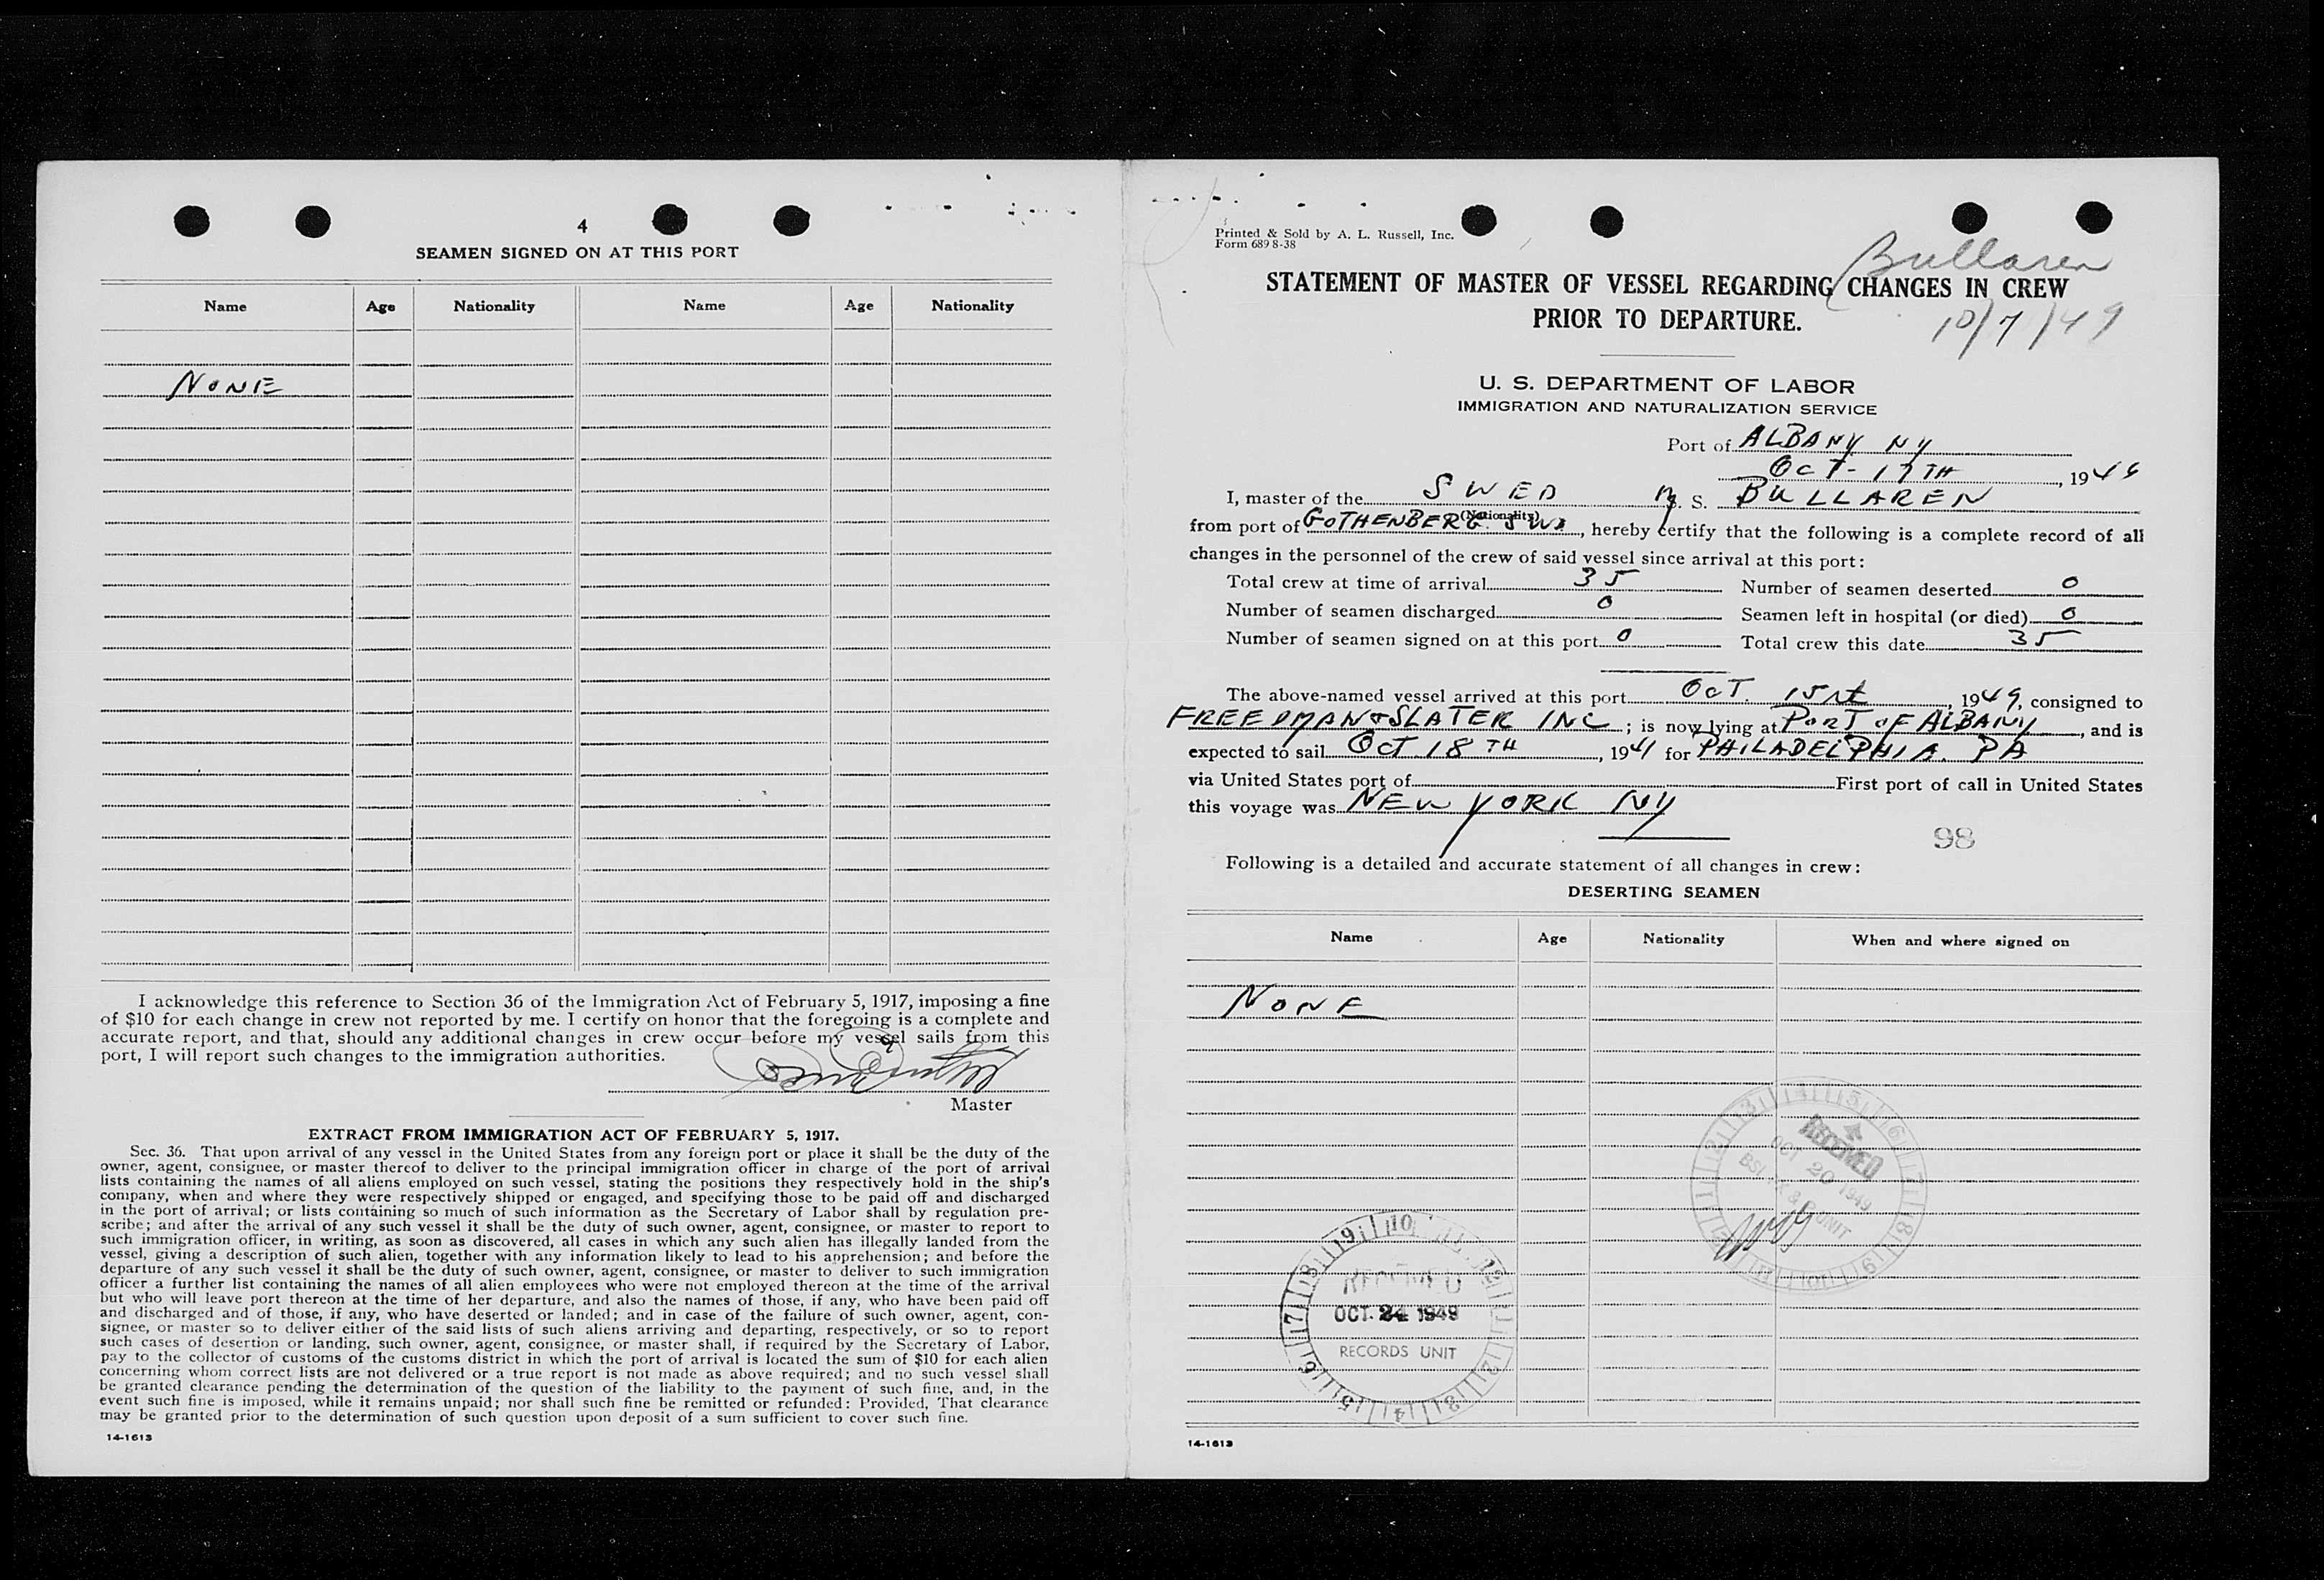 4
SEAMEN SIGNED ON AT THIS PORT
Name Age Nationality Name Age Nationality
NONE
I acknowledge this reference to Section 36 of the Immigration Act of February 5, 1917, imposing a fine
of $10 for each change in crew not reported by me. I certify on honor that the foregoing is a complete and
accurate report, and that, should any additional changes in crew occur before my vessel sails from this
port, I will report such changes to the immigration authorities.
Master
EXTRACT FROM IMMIGRATION ACT OF FEBRUARY 5, 1917.
Sec. 36. That upon arrival of any vessel in the United States from any foreign port or place it shall be the duty of the
owner, agent, consignee, or master thereof to deliver to the principal immigration officer in charge of the port of arrival
lists containing the names of all aliens employed on such vessel, stating the positions they respectively hold in the ship's
company, when and where they were respectively shipped or engaged, and specifying those to be paid off and discharged
in the port of arrival; or lists containing so much of such information as the Secretary of Labor shall by regulation pre-
scribe; and after the arrival of any such vessel it shall be the duty of such owner, agent, consignee, or master to report to
such immigration officer, in writing, as soon as discovered, all cases in which any such alien has illegally landed from the
vessel, giving a description of such alien, together with any information likely to lead to his apprehension; and before the
departure of any such vessel it shall be the duty of such owner, agent, consignee, or master to deliver to such immigration
officer a further list containing the names of all alien employees who were not employed thereon at the time of the arrival
but who will leave port thereon at the time of her departure, and also the names of those, if any, who have been paid off
and discharged and of those, if any, who have deserted or landed; and in case of the failure of such owner, agent, con-
signee, or master so to deliver either of the said lists of such aliens arriving and departing, respectively, or so to report
such cases of desertion or landing, such owner, agent, consignee, or master shall, if required by the Secretary of Labor,
pay to the collector of customs of the customs district in which the port of arrival is located the sum of $10 for each alien
concerning whom correct lists are not delivered or a true report is not made as above required; and no such vessel shall
be granted clearance pending the determination of the question of the liability to the payment of such fine, and, in the
event such fine is imposed, while it remains unpaid; nor shall such fine be remitted or refunded: Provided, That clearance
may be granted prior to the determination of such question upon deposit of a sum sufficient to cover such fine.
14-1613
Printed & Sold by A. L. Russell, Inc.
Form 689 8-38
Bullaren
STATEMENT OF MASTER OF VESSEL REGARDING CHANGES IN CREW
PRIOR TO DEPARTURE.
10/7/49
U. S. DEPARTMENT OF LABOR
IMMIGRATION AND NATURALIZATION SERVICE
Port of ALBANY NY
OCT-17TH, 1949
I, master of the SWED M. S. BULLAREN
(Nationality)
from port of GOTHENBERG. SWD, hereby certify that the following is a complete record of all
changes in the personnel of the crew of said vessel since arrival at this port:
Total crew at time of arrival 35 Number of seamen deserted 0
Number of seamen discharged 0 Seamen left in hospital (or died) 0
Number of seamen signed on at this port 0 Total crew this date 35
The above-named vessel arrived at this port OCT. 15st, 1949, consigned to
FREEDMAN & SLATER INC; is now lying at PORT OF ALBANY, and is
expected to sail OCT 18TH, 1941 for PHILADELPHIA. PA
via United States port of First port of call in United States
this voyage was NEW YORK NY
98
Following is a detailed and accurate statement of all changes in crew:
DESERTING SEAMEN
Name Age Nationality When and where signed on
NONE
RECEIVED
OCT 20 1949
UNIT
RECEIVED
OCT. 24 1949
RECORDS UNIT
14-1613